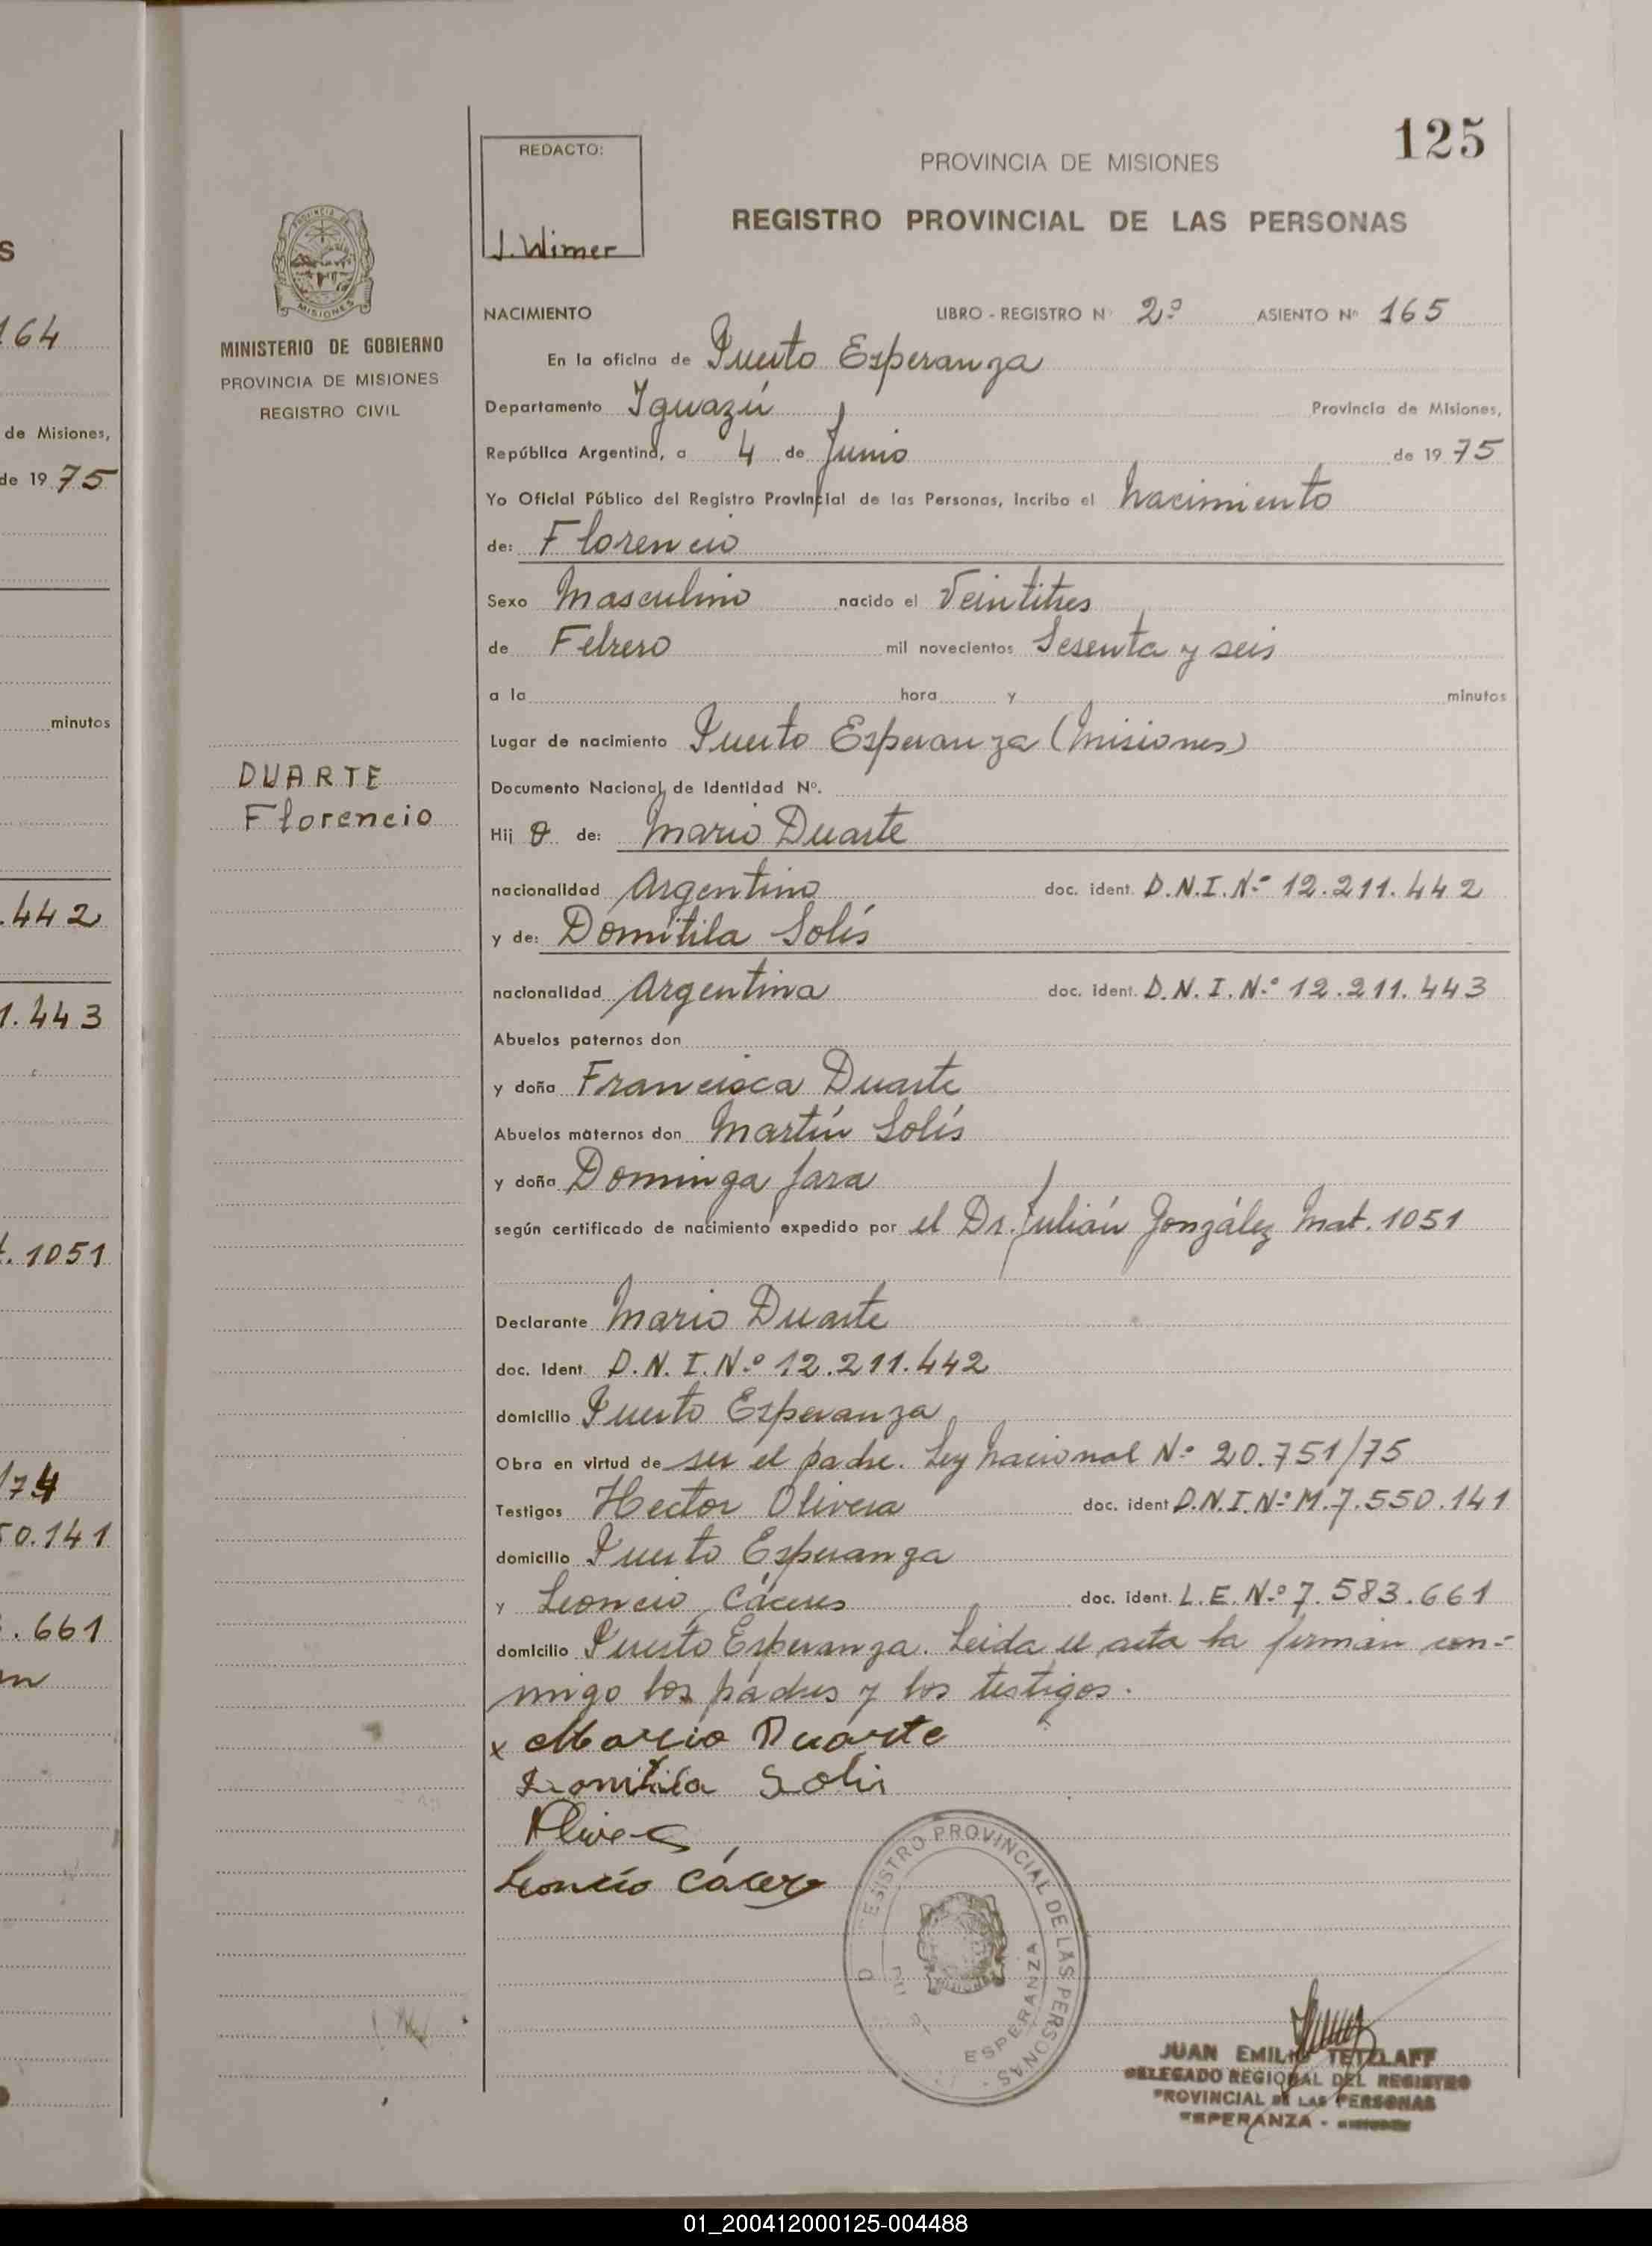 S
164
de Misiones,
de 19 75
minutos
.442
1.443
t. 1051
/74
50.141
.661
n
125
REDACTO:
J. Wimer
PROVINCIA DE MISIONES
REGISTRO PROVINCIAL DE LAS PERSONAS
PROVINCIA DE
MISIONES
MINISTERIO DE GOBIERNO
PROVINCIA DE MISIONES
REGISTRO CIVIL
DUARTE
Florencio
NACIMIENTO LIBRO - REGISTRO Nº 2º ASIENTO Nº 165
En la oficina de Puerto Esperanza
Departamento Iguazú Provincia de Misiones,
República Argentina, a 4 de Junio de 1975
Yo Oficial Público del Registro Provincial de las Personas, incribo el nacimiento
de: Florencio
Sexo Masculino nacido el Veintitres
de Febrero mil novecientos Sesenta y seis
a la hora y minutos
Lugar de nacimiento Puerto Esperanza (Misiones)
Documento Nacional de Identidad Nº.
Hij o de: Mario Duarte
nacionalidad Argentino doc. ident. D.N.I. Nº 12.211.442
y de: Domitila Solís
nacionalidad Argentina doc. ident. D.N.I. Nº 12.211.443
Abuelos paternos don
y doña Francisca Duarte
Abuelos maternos don Martín Solís
y doña Dominga Jara
según certificado de nacimiento expedido por el Dr. Julián González Mat. 1051
Declarante Mario Duarte
doc. Ident. D.N.I. Nº 12.211.442
domicilio Puerto Esperanza
Obra en virtud de ser el padre. Ley nacional Nº 20.751/75
Testigos Hector Olivera doc. ident D.N.I. Nº M.7.550.141
domicilio Puerto Esperanza
y Leoncio Cáceres doc. ident. L.E. Nº 7.583.661
domicilio Puerto Esperanza. Leida el acta la firman con-
migo los padres y los testigos.
x Mario Duarte
Domitila Solis
Leoncio Cácers
REGISTRO PROVINCIAL DE LAS PERSONAS
ESPERANZA
JUAN EMILIO TETZLAFF
DELEGADO REGIONAL DEL REGISTRO
PROVINCIAL DE LAS PERSONAS
ESPERANZA -
01_200412000125-004488